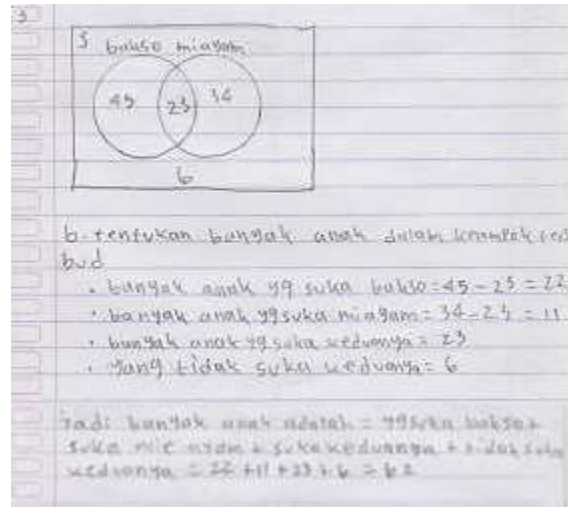 3
S bakso miayam
45 23 34
6
b. tentukan banyak anak dalam kelompok
bud
• banyak anak yg suka bakso = 45 - 23 = 22
• banyak anak yg suka miayam = 34 - 23 = 11
• banyak anak yg suka keduanya = 23
• yang tidak suka keduanya = 6
Jadi banyak anak adalah = yg suka bakso +
suka mie ayam + suka keduanya + tidak suka
keduanya = 22 + 11 + 23 + 6 = 62